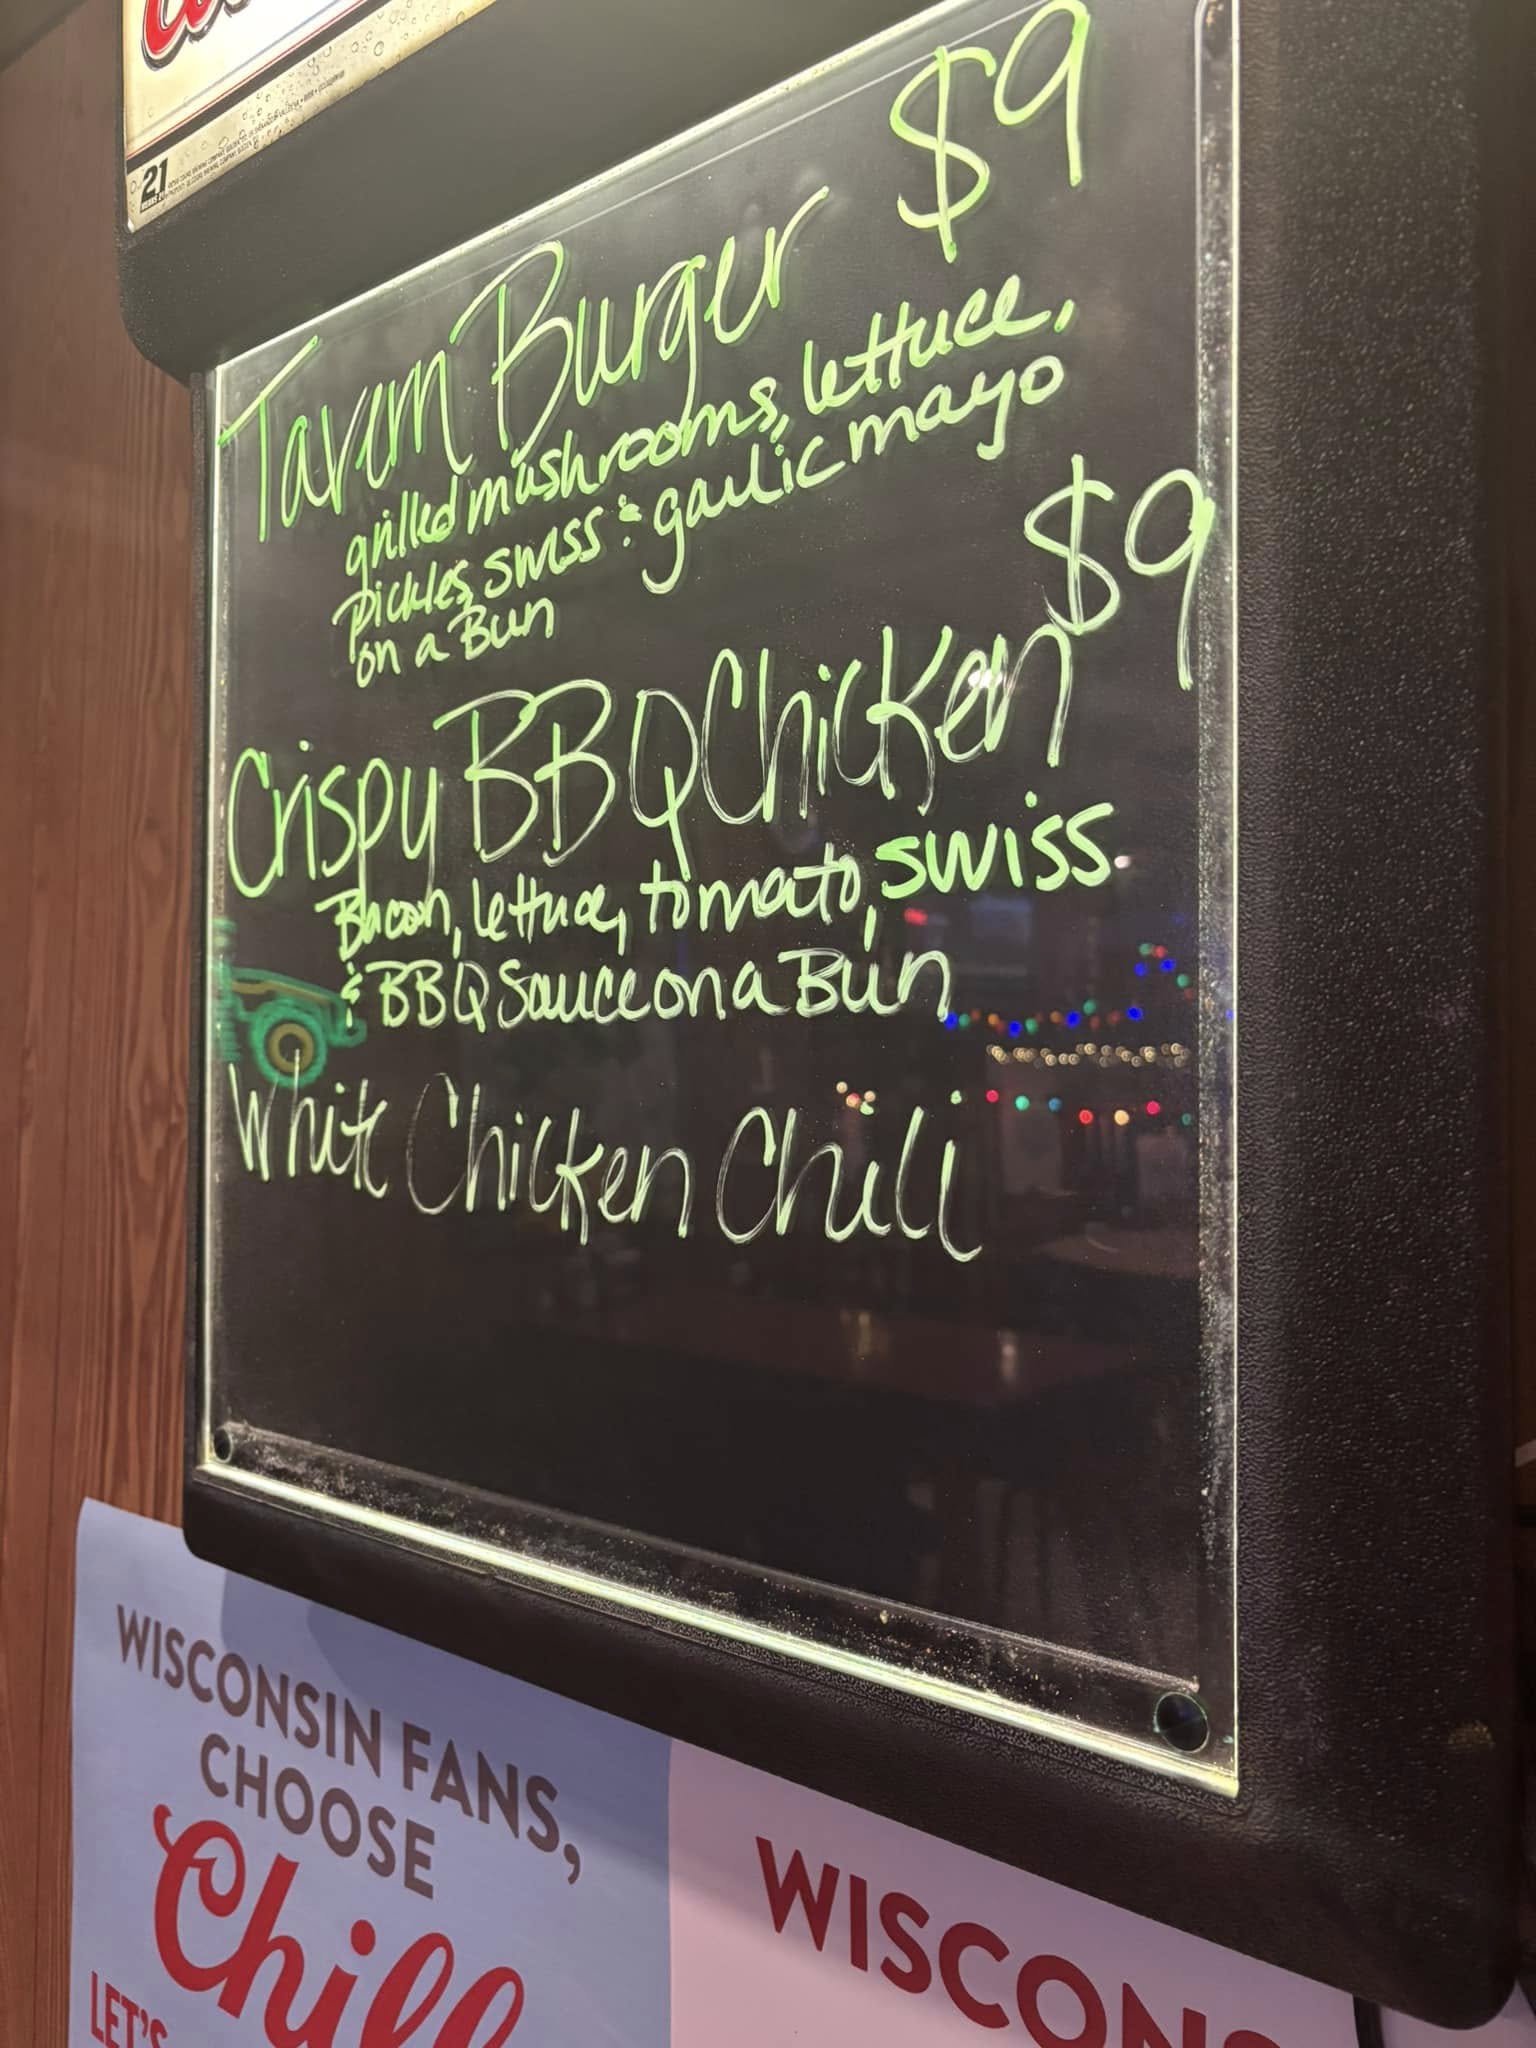 21
$9
Tavern Burger
grilled mushrooms, lettuce,
pickles, swiss & garlic mayo
on a Bun
$9
Crispy BBQ Chicken
Bacon, lettuce, tomato, swiss
& BBQ Sauce on a Bun
White Chicken Chili
WISCONSIN FANS,
CHOOSE
Chill
LET'S
WISCONS